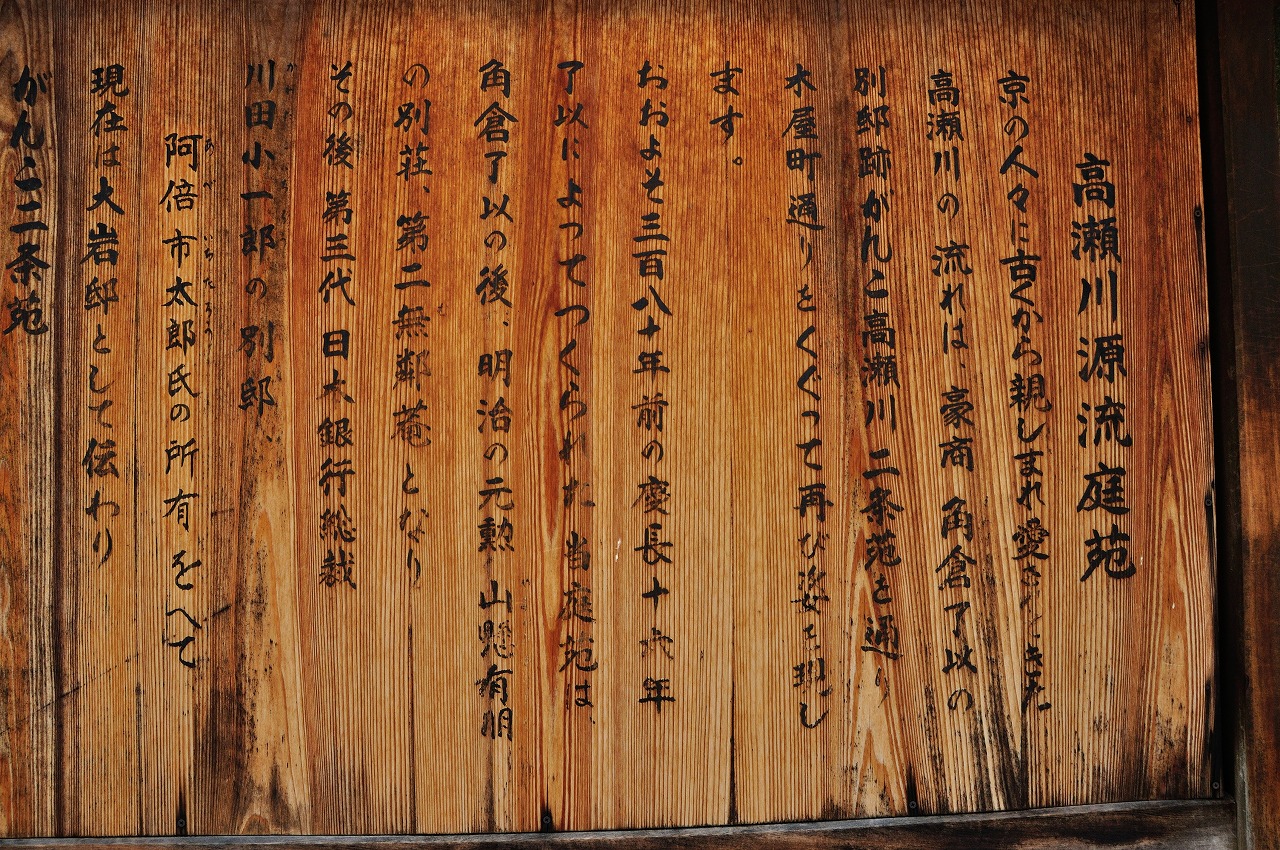 高瀬川源流庭苑
京の人々に古くから親しまれ愛されてきた
高瀬川の流れは、豪商 角倉了以の
別邸跡がんこ高瀬川二条苑を通り
木屋町通りをくぐって再び姿を現し
ます。
おおよそ三百八十年前の慶長十六年
了以によってつくられた当庭苑は、
角倉了以の後、明治の元勲 山縣有朋
の別荘、第二無鄰菴となり
その後 第三代 日本銀行総裁
川田小一郎の別邸、
阿倍市太郎氏の所有をへて
現在は大岩邸として伝わり
がんこ二条苑